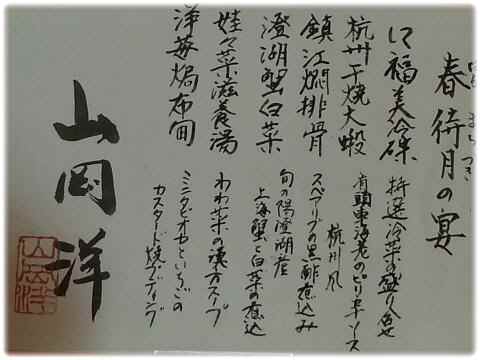 春待月の宴
口福美冷碟
特選冷菜の盛り合せ
杭州干焼大蝦
有頭車海老のピリ辛ソース
杭州風
鎮江燜排骨
スペアリブの黒酢煮込み
澄湖蟹白菜
旬の陽澄湖産
上海蟹と白菜の煮込
娃々菜滋養湯
わわ菜の漢方スープ
洋苺焗布甸
ミニタピオカといちごの
カスタード焼プディング
山岡洋